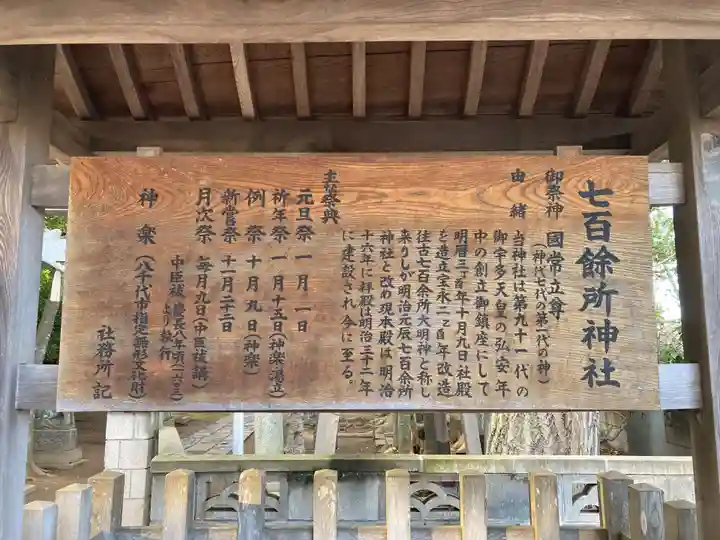 七百餘所神社
御祭神 國常立尊
(神代七代の第一代の神)
由緒 当神社は第九十一代の
御宇多天皇の弘安年
中の創立御鎮座にして
明暦三丁酉年十月九日社殿
を造立宝永二乙酉年改造
往古七百余所大明神と称し
来りしが明治元辰七百余所
神社と改め現本殿は明治
十六年に拝殿は明治三十二年
に建設され今に至る。
主な祭典
元旦祭 一月一日
祈年祭 一月十五日(神楽・湯立)
例祭 十月九日(神楽)
新嘗祭 十一月二十三日
月次祭 毎月九日(中臣祓講)
中臣祓 慶長八年頃(一六〇三)
より執行
神楽 (八千代市指定無形文化財)
社務所記